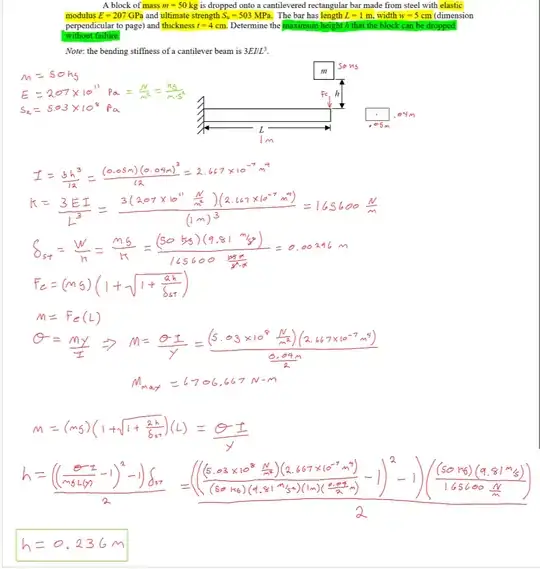 A block of mass m = 50 kg is dropped onto a cantilevered rectangular bar made from steel with elastic
modulus E = 207 GPa and ultimate strength Su = 503 MPa. The bar has length L = 1 m, width w = 5 cm (dimension
perpendicular to page) and thickness t = 4 cm. Determine the maximum height h that the block can be dropped
without failure.
Note: the bending stiffness of a cantilever beam is 3EI/L³.
m = 50 kg
E = 207 x 10¹¹ Pa = N/m² = kg/m·s²
Su = 5.03 x 10⁸ Pa
m 50 kg
Fc h
L
1m
.04m
.05m
I = bh³/12 = (0.05m)(0.04m)³/12 = 2.667 x 10⁻⁷ m⁴
K = 3EI/L³ = 3(207 x 10¹¹ N/m²)(2.667 x 10⁻⁷ m⁴)/(1m)³ = 165600 N/m
δst = W/K = mg/K = (50 kg)(9.81 m/s²)/165600 = 0.00296 m
Fc = (mg)(1+√1+2h/δst)
m = Fc(L)
σ = My/I ⇒ M = σI/y = (5.03 x 10⁸ N/m²)(2.667 x 10⁻⁷ m⁴)/(0.04m/2)
Mmax = 6706.667 N-m
m = (mg)(1+√1+2h/δst)(L) = σI/y
h = ((σI/mgL(y) -1)² -1)δst/2 = (((5.03 x 10⁸ N/m²)(2.667 x 10⁻⁷ m⁴)/(50 kg)(9.81 m/s²)(1m)(0.04/2 m) -1)² -1)((50 kg)(9.81 m/s²)/165600 N/m)/2
h = 0.236 m